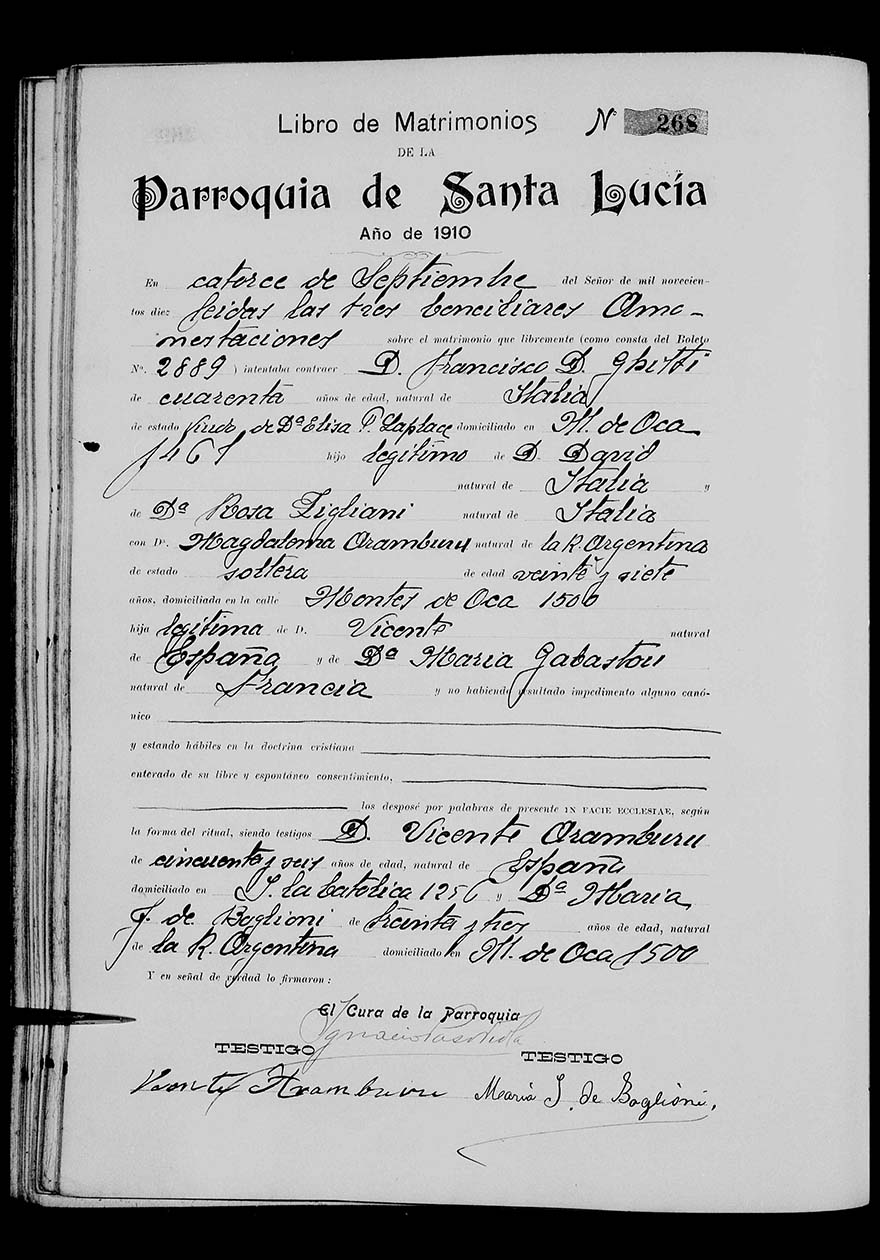 Libro de Matrimonios Nº 268
DE LA
Parroquia de Santa Lucía
Año de 1910
En catorce de Septiembre del Señor de mil novecien-
tos diez leidas las tres Conciliares Amo-
nestaciones sobre el matrimonio que libremente (como consta del Boleto
Nº. 2889 ) intentaba contraer D. Francisco D. Ghitti
de cuarenta años de edad, natural de Italia
de estado viudo de Dª Elisa P. Laplace domiciliado en M. de Oca
1461 hijo legitimo de D. David
natural de Italia y
de Dª Rosa Zigliani natural de Italia
con Dª. Magdalena Aramburu natural de la R. Argentina
de estado soltera de edad veinte y siete
años, domiciliada en la calle Montes de Oca 1500
hija legitima de D. Vicente natural
de España y de Dª Maria Gabastou
natural de Francia y no habiendo resultado impedimento alguno canó-
nico
y estando hábiles en la doctrina cristiana
enterado de su libre y espontáneo consentimiento,
los desposé por palabras de presente IN FACIE ECCLESIAE, según
la forma del ritual, siendo testigos D. Vicente Aramburu
de cincuenta y seis años de edad, natural de España
domiciliado en I. la Catolica 1256 y Dª Maria
J. de Baglioni de treinta y tres años de edad, natural
de la R. Argentina domiciliado en M. de Oca 1500
Y en señal de verdad lo firmaron:
El Cura de la Parroquia
Ignacio
TESTIGO TESTIGO
Vicente Aramburu Maria J. de Baglioni.